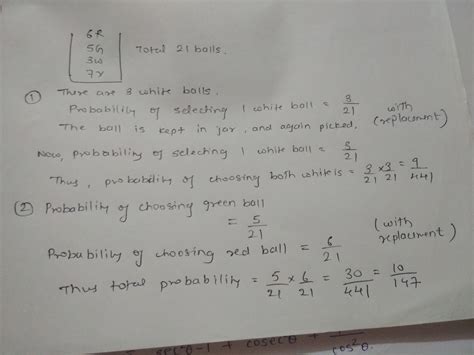 6R
5G
3W
7Y
Total 21 balls.
① There are 3 white balls.
Probability of selecting 1 white ball = 3/21 (with replacement)
The ball is kept in jar, and again picked.
Now, probability of selecting 1 white ball = 3/21
Thus, probability of choosing both white is = 3/21 × 3/21 = 9/441
② Probability of choosing green ball
= 5/21
(with replacment)
Probability of choosing red ball = 6/21
Thus total probability = 5/21 × 6/21 = 30/441 = 10/147
sec²θ-1 + cosec²θ + 1/cos²θ.